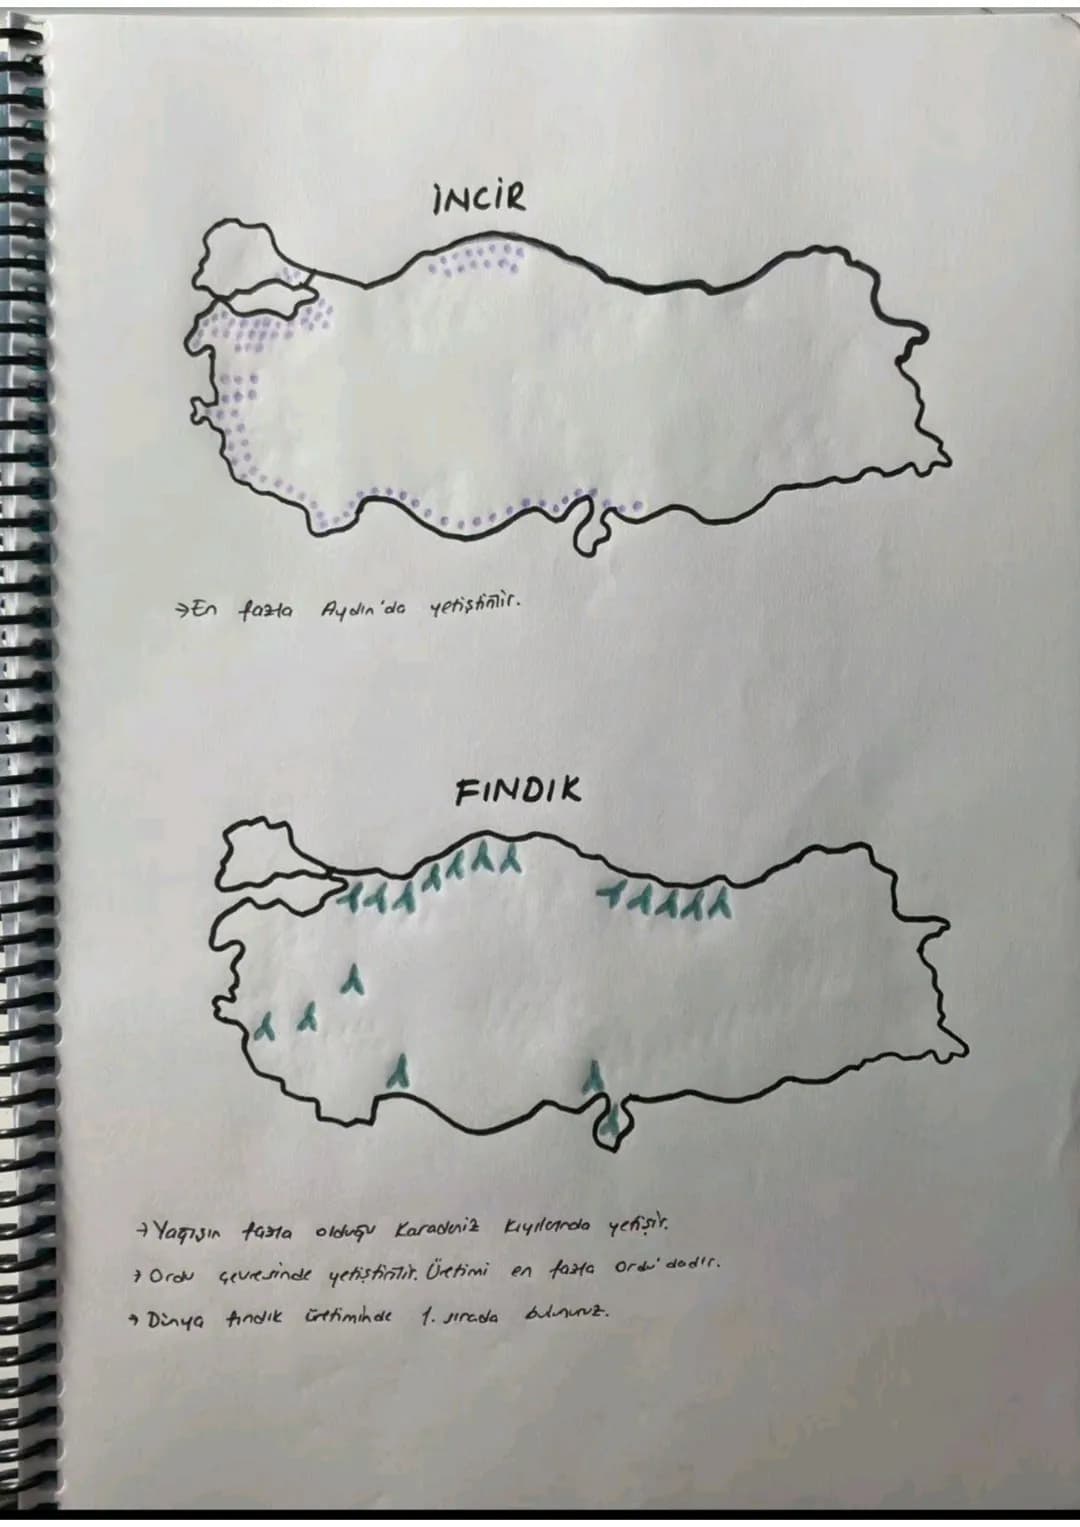 İNCİR
→En fazla Aydın'da yetiştirilir.
FINDIK
→Yağışın fazla olduğu Karadeniz kıyılarında yetişir.
→Ordu çevresinde yetiştirilir. Üretimi en fazla Ordu'dadır.
→Dünya fındık üretiminde 1. sırada bulunuruz.